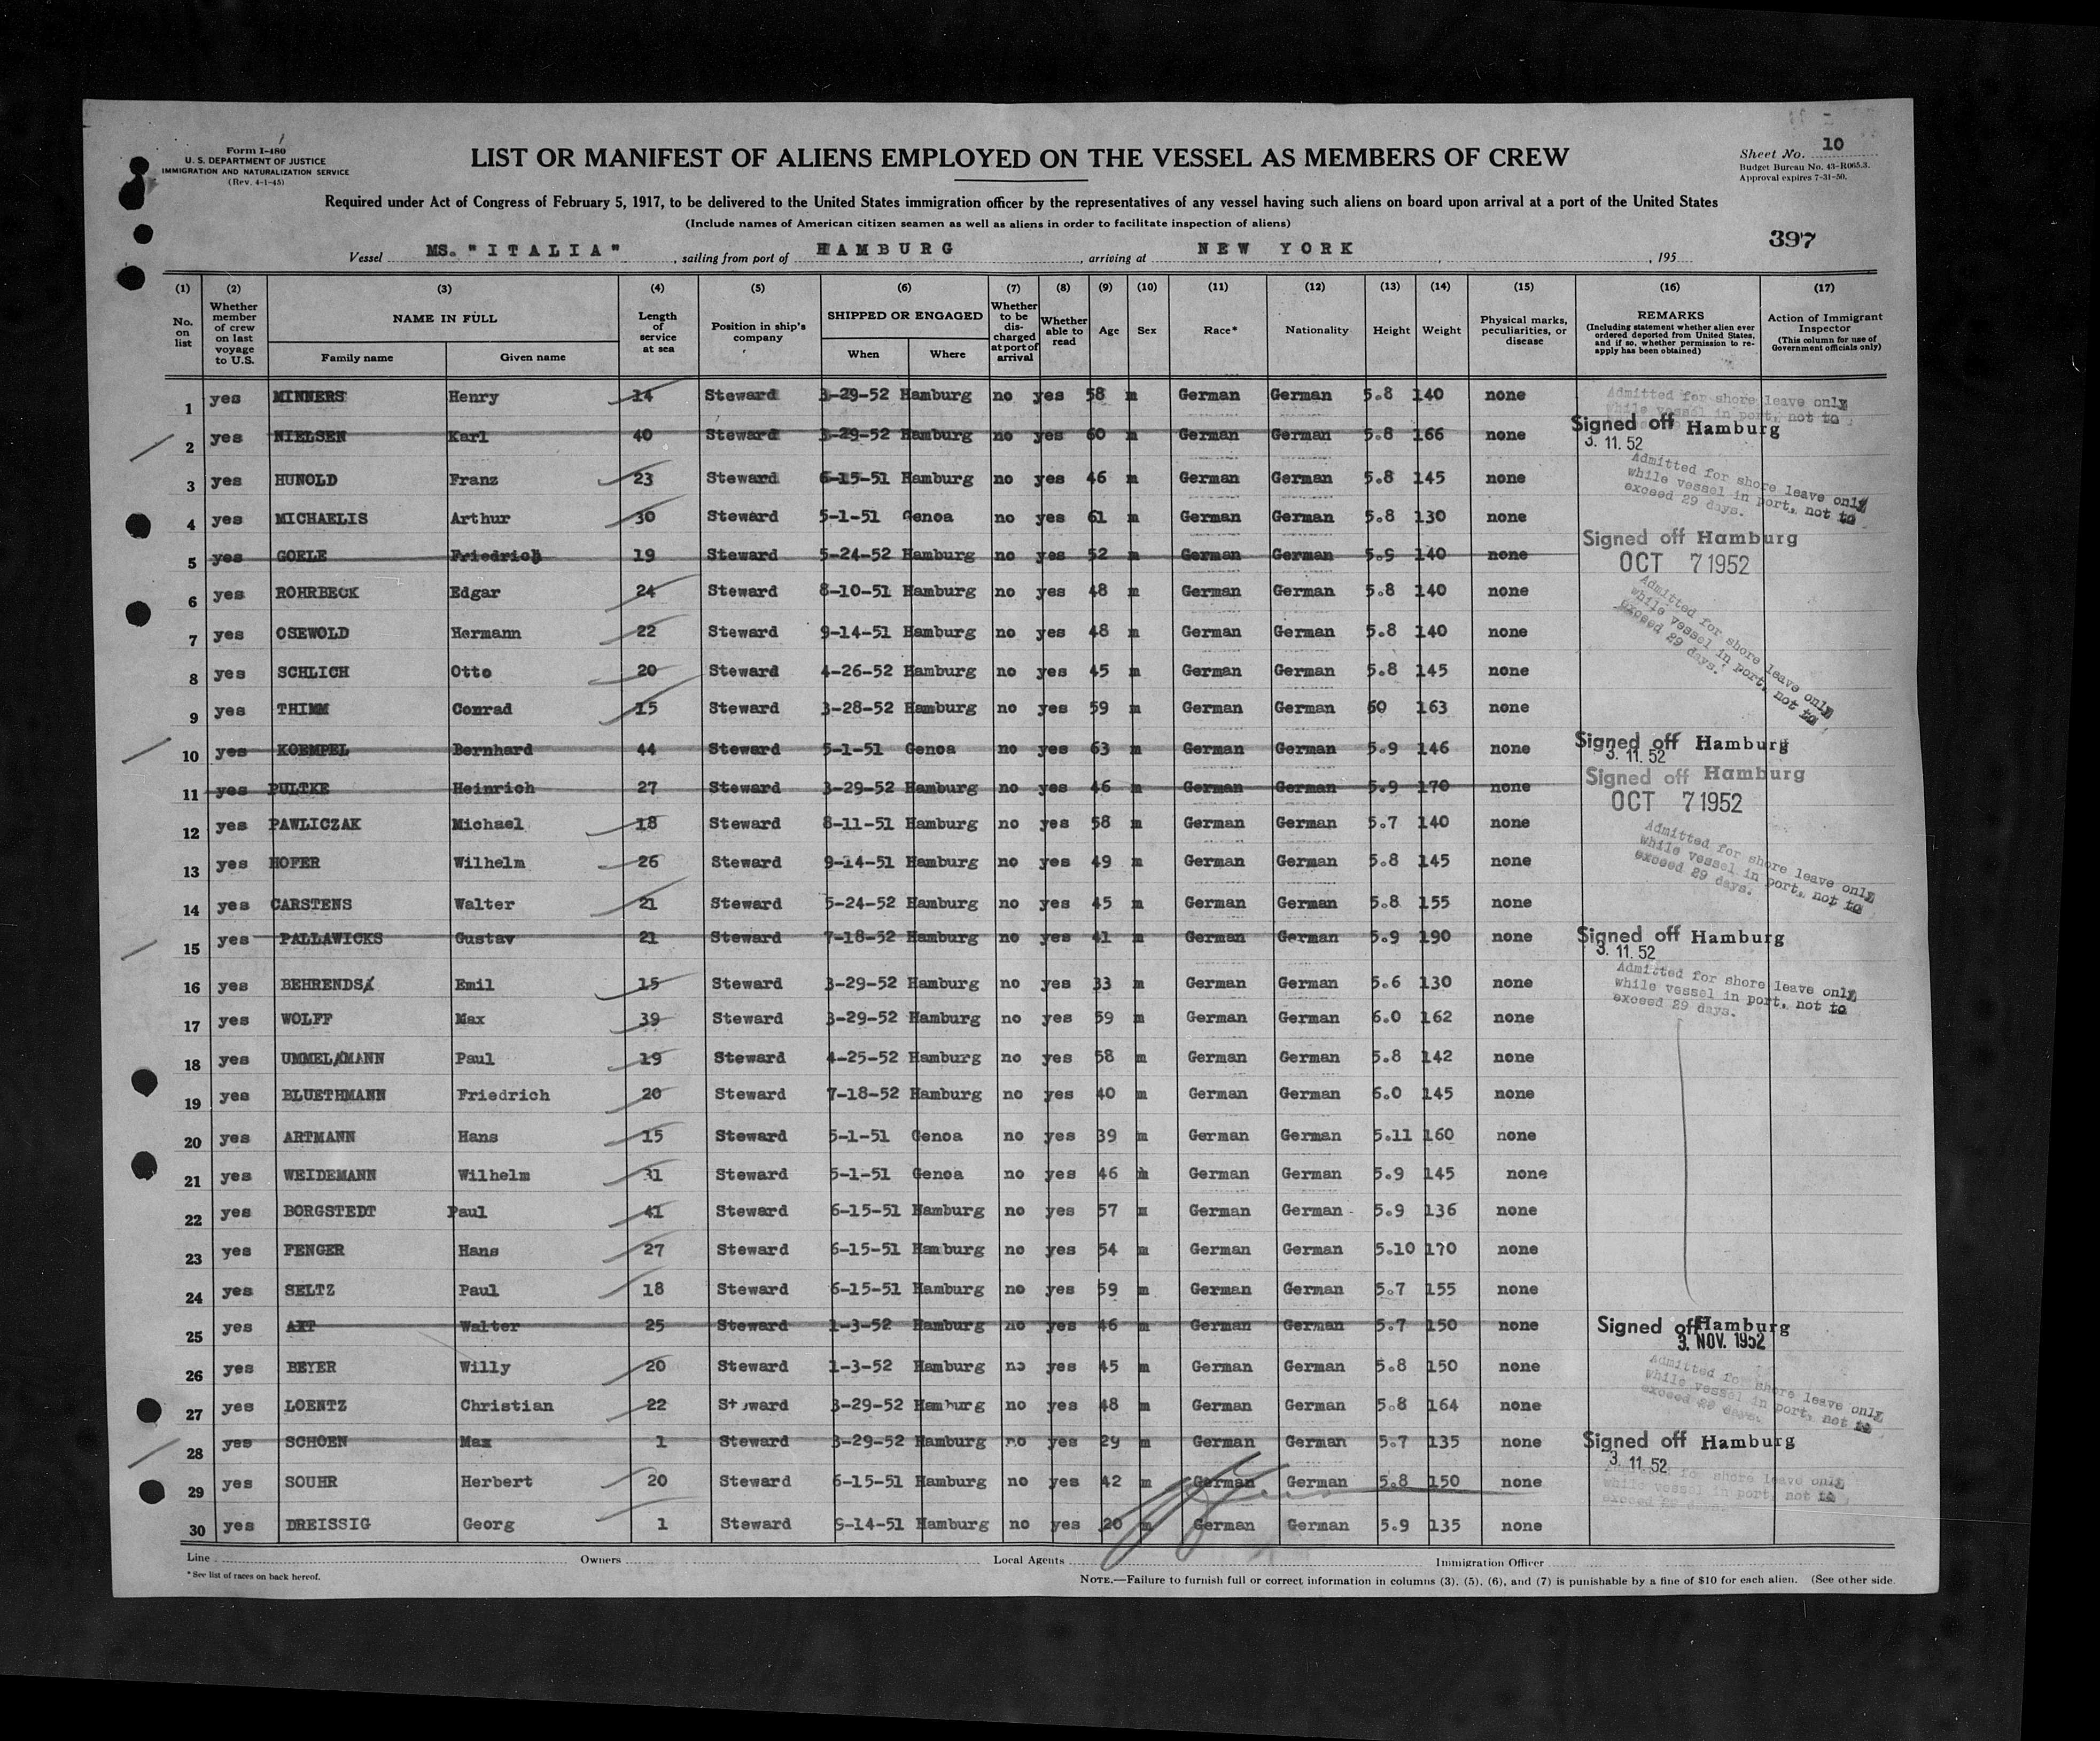 Form I-480
U. S. DEPARTMENT OF JUSTICE
IMMIGRATION AND NATURALIZATION SERVICE
(Rev. 4-1-45)
LIST OR MANIFEST OF ALIENS EMPLOYED ON THE VESSEL AS MEMBERS OF CREW
Sheet No. 10
Budget Bureau No. 43-R065.3.
Approval expires 7-31-50.
Required under Act of Congress of February 5, 1917, to be delivered to the United States immigration officer by the representatives of any vessel having such aliens on board upon arrival at a port of the United States
(Include names of American citizen seamen as well as aliens in order to facilitate inspection of aliens)
397
Vessel MS. "ITALIA", sailing from port of HAMBURG, arriving at NEW YORK, 195
(1) No. on list (2) Whether member of crew on last voyage to U.S. (3) NAME IN FULL Family name Given name (4) Length of service at sea (5) Position in ship's company (6) SHIPPED OR ENGAGED When Where (7) Whether to be discharged at port of arrival (8) Whether able to read (9) Age (10) Sex (11) Race* (12) Nationality (13) Height (14) Weight (15) Physical marks, peculiarities, or disease (16) REMARKS (Including statement whether alien ever ordered deported from United States, and if so, whether permission to re-apply has been obtained) (17) Action of Immigrant Inspector (This column for use of Government officials only)
1 yes MINNERS Henry 14 Steward 3-29-52 Hamburg no yes 58 m German German 5.8 140 none Admitted for shore leave only while vessel in port, not to
2 yes NIELSEN Karl 40 Steward 3-29-52 Hamburg no yes 60 m German German 5.8 166 none Signed off Hamburg 3. 11. 52
3 yes HUNOLD Franz 23 Steward 6-15-51 Hamburg no yes 46 m German German 5.8 145 none Admitted for shore leave only while vessel in port, not to exceed 29 days.
4 yes MICHAELIS Arthur 30 Steward 5-1-51 Genoa no yes 61 m German German 5.8 130 none
5 yes GOELE Friedrich 19 Steward 5-24-52 Hamburg no yes 52 m German German 5.9 140 none Signed off Hamburg OCT 7 1952
6 yes ROHRBECK Edgar 24 Steward 8-10-51 Hamburg no yes 48 m German German 5.8 140 none Admitted for shore leave only while vessel in port, not to exceed 29 days.
7 yes OSEWOLD Hermann 22 Steward 9-14-51 Hamburg no yes 48 m German German 5.8 140 none
8 yes SCHLICH Otto 20 Steward 4-26-52 Hamburg no yes 45 m German German 5.8 145 none
9 yes THIMM Conrad 15 Steward 3-28-52 Hamburg no yes 59 m German German 60 163 none
10 yes KOEMPEL Bernhard 44 Steward 5-1-51 Genoa no yes 63 m German German 5.9 146 none Signed off Hamburg 3. 11. 52
11 yes PULTKE Heinrich 27 Steward 3-29-52 Hamburg no yes 46 m German German 5.9 170 none Signed off Hamburg OCT 7 1952
12 yes PAWLICZAK Michael 18 Steward 8-11-51 Hamburg no yes 58 m German German 5.7 140 none Admitted for shore leave only while vessel in port, not to exceed 29 days.
13 yes HOFER Wilhelm 26 Steward 9-14-51 Hamburg no yes 49 m German German 5.8 145 none
14 yes CARSTENS Walter 21 Steward 5-24-52 Hamburg no yes 45 m German German 5.8 155 none
15 yes PALLAWICKS Gustav 21 Steward 7-18-52 Hamburg no yes 41 m German German 5.9 190 none Signed off Hamburg 3. 11. 52
16 yes BEHRENDS Emil 15 Steward 3-29-52 Hamburg no yes 33 m German German 5.6 130 none Admitted for shore leave only while vessel in port, not to exceed 29 days.
17 yes WOLFF Max 39 Steward 3-29-52 Hamburg no yes 59 m German German 6.0 162 none
18 yes UMMELMANN Paul 19 Steward 4-25-52 Hamburg no yes 58 m German German 5.8 142 none
19 yes BLUETHMANN Friedrich 20 Steward 7-18-52 Hamburg no yes 40 m German German 6.0 145 none
20 yes ARTMANN Hans 15 Steward 5-1-51 Genoa no yes 39 m German German 5.11 160 none
21 yes WEIDEMANN Wilhelm 31 Steward 5-1-51 Genoa no yes 46 m German German 5.9 145 none
22 yes BORGSTEDT Paul 41 Steward 6-15-51 Hamburg no yes 57 m German German 5.9 136 none
23 yes FENGER Hans 27 Steward 6-15-51 Hamburg no yes 54 m German German 5.10 170 none
24 yes SELTZ Paul 18 Steward 6-15-51 Hamburg no yes 59 m German German 5.7 155 none
25 yes Walter 25 Steward 1-3-52 Hamburg no yes 46 m German German 5.7 150 none Signed off Hamburg 3. NOV. 1952
26 yes BEYER Willy 20 Steward 1-3-52 Hamburg no yes 45 m German German 5.8 150 none Admitted for shore leave only while vessel in port, not to exceed 29 days.
27 yes LOENTZ Christian 22 Steward 3-29-52 Hamburg no yes 48 m German German 5.8 164 none
28 yes SCHOEN Max 1 Steward 3-29-52 Hamburg no yes 29 m German German 5.7 135 none Signed off Hamburg 3. 11. 52
29 yes SOUHR Herbert 20 Steward 6-15-51 Hamburg no yes 42 m German German 5.8 150 none for shore leave only while vessel in port, not to exceed
30 yes DREISSIG Georg 1 Steward 9-14-51 Hamburg no yes 20 m German German 5.9 135 none
Line Owners Local Agents Immigration Officer
* See list of races on back hereof.
NOTE.—Failure to furnish full or correct information in columns (3), (5), (6), and (7) is punishable by a fine of $10 for each alien. (See other side.